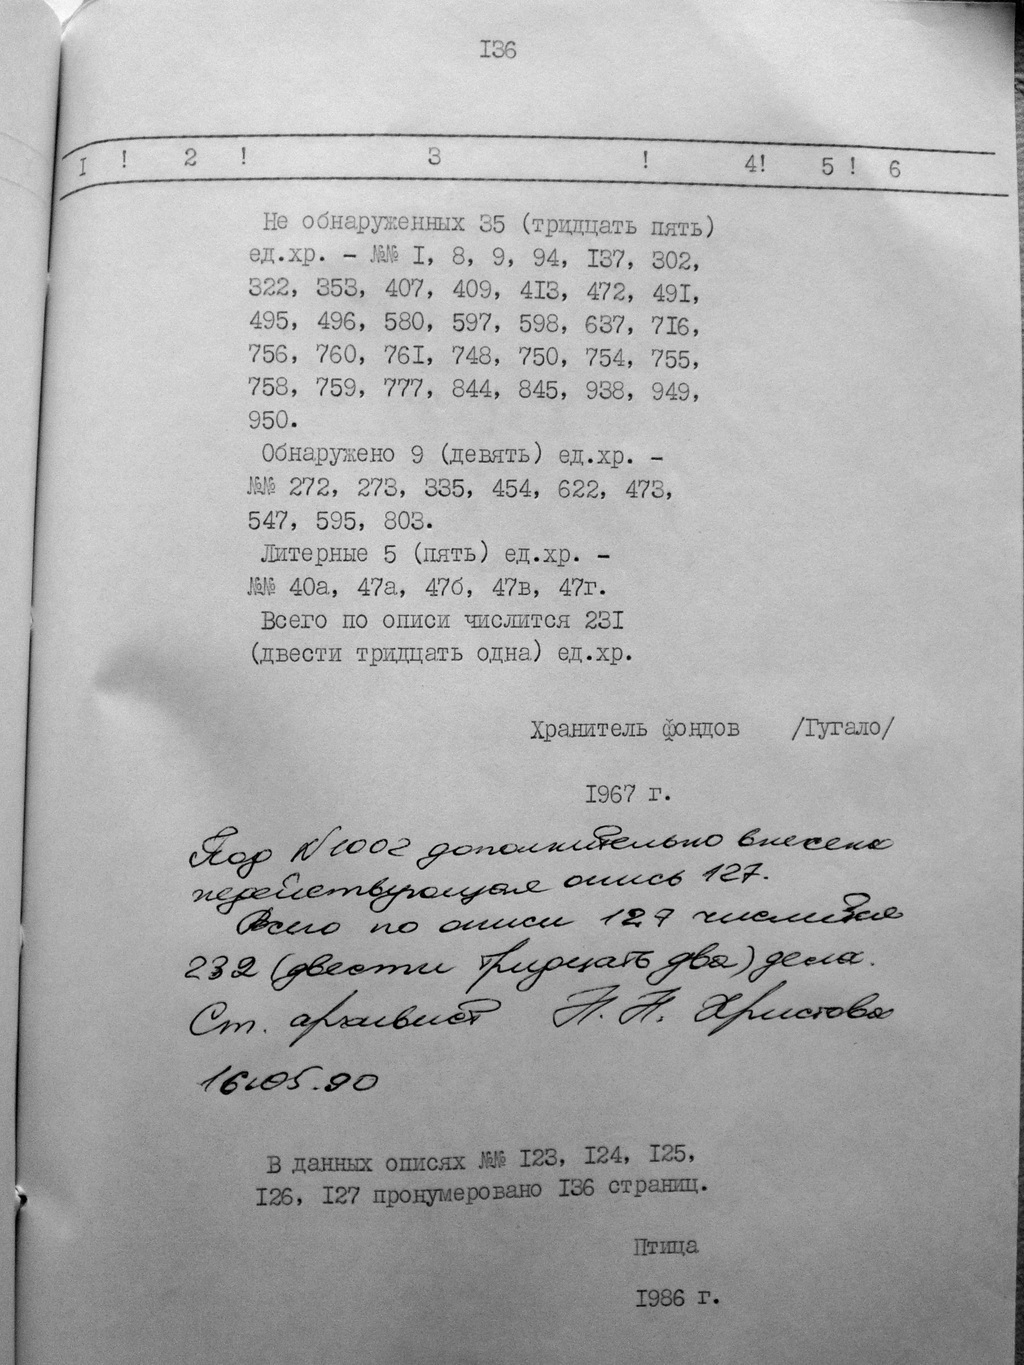 136
1 ! 2 ! 3 ! 4! 5 ! 6
Не обнаруженных 35 (тридцать пять)
ед.хр. - №№ 1, 8, 9, 94, 137, 302,
322, 353, 407, 409, 413, 472, 491,
495, 496, 580, 597, 598, 637, 716,
756, 760, 761, 748, 750, 754, 755,
758, 759, 777, 844, 845, 938, 949,
950.
Обнаружено 9 (девять) ед.хр. -
№№ 272, 273, 335, 454, 622, 473,
547, 595, 803.
Литерные 5 (пять) ед.хр. -
№№ 40а, 47а, 47б, 47в, 47г.
Всего по описи числится 231
(двести тридцать одна) ед.хр.
Хранитель фондов /Гугало/
1967 г.
Под N 1002 дополнительно внесена
недействующая опись 127.
Всего по описи 127 числится
232 (двести тридцать два) дела.
Ст. архивист Н. Н. Христова
16.05.90
В данных описях №№ 123, 124, 125,
126, 127 пронумеровано 136 страниц.
Птица
1986 г.